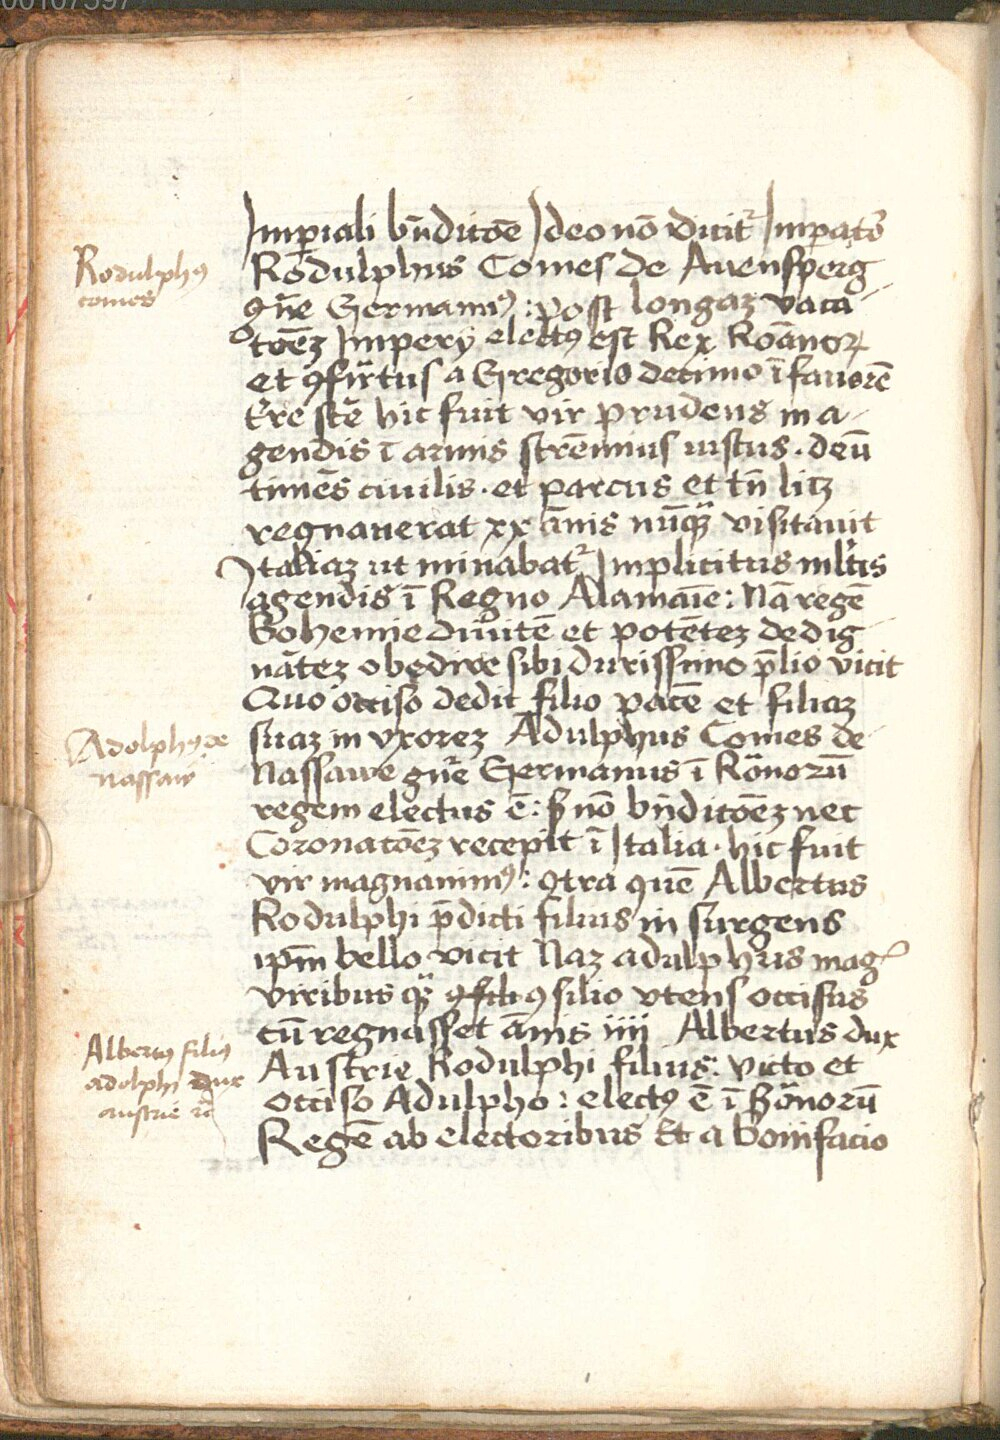 Imp̱iali bn̄dictōe Ideo nō dicit᷑ Imp̱ator̄
Rodulphus Comes de Auensperg
gn̄e Germanꝰ : post longaꝫ vaca
tōeꝫ Impery electꝯ est Rex Roānoꝝ
et ꝯfir̄tus a Gregorio decimo ī fauorē
t̄re sc̄te hic fuit vir prudens in a
gendis ī armis strēnuus iustus . deū
timēs ciuilis . et parcus et tn̄ licꝫ
regnauerat xx ānis nūq̄ꝫ visitauit
Italiaꝫ ut minabat᷑ Implicitus ml̄tis
agendis ī Regno Alamāie : Nā regē
Bohemie diuitē et potēteꝫ dedig
nāteꝫ obedire sibi durissimo p̄lio vicit
Quo occiso dedit filio pacē et filiaꝫ
suaꝫ in vxoreꝫ Adulphus Comes de
Nassawe gn̄e Germanus ī Rōnorū
regem electus ē : s̄ nō bn̄dictōeꝫ nec
Coronatōeꝫ recepit ī Italia . hic fuit
vir magnanimꝰ : ꝯtra quē Albertus
Rodulphi p̄dicti filius in surgens
ip̄m bello vicit Naꝫ adulphus mag᷑
viribus q̄ꝫ ꝯsilio vtens occisus
cū regnasset ānis iiii Albertus dux
Austrie Rodulphi filius : victo et
occiso Adulpho : electꝯ ē ī Rōnorū
Regē ab electoribus Et a Bonifacio
Rodulphꝯ
comes
Adolphꝯ de
nassaw
Albertꝯ filiꝯ
adolphi dux
austrie